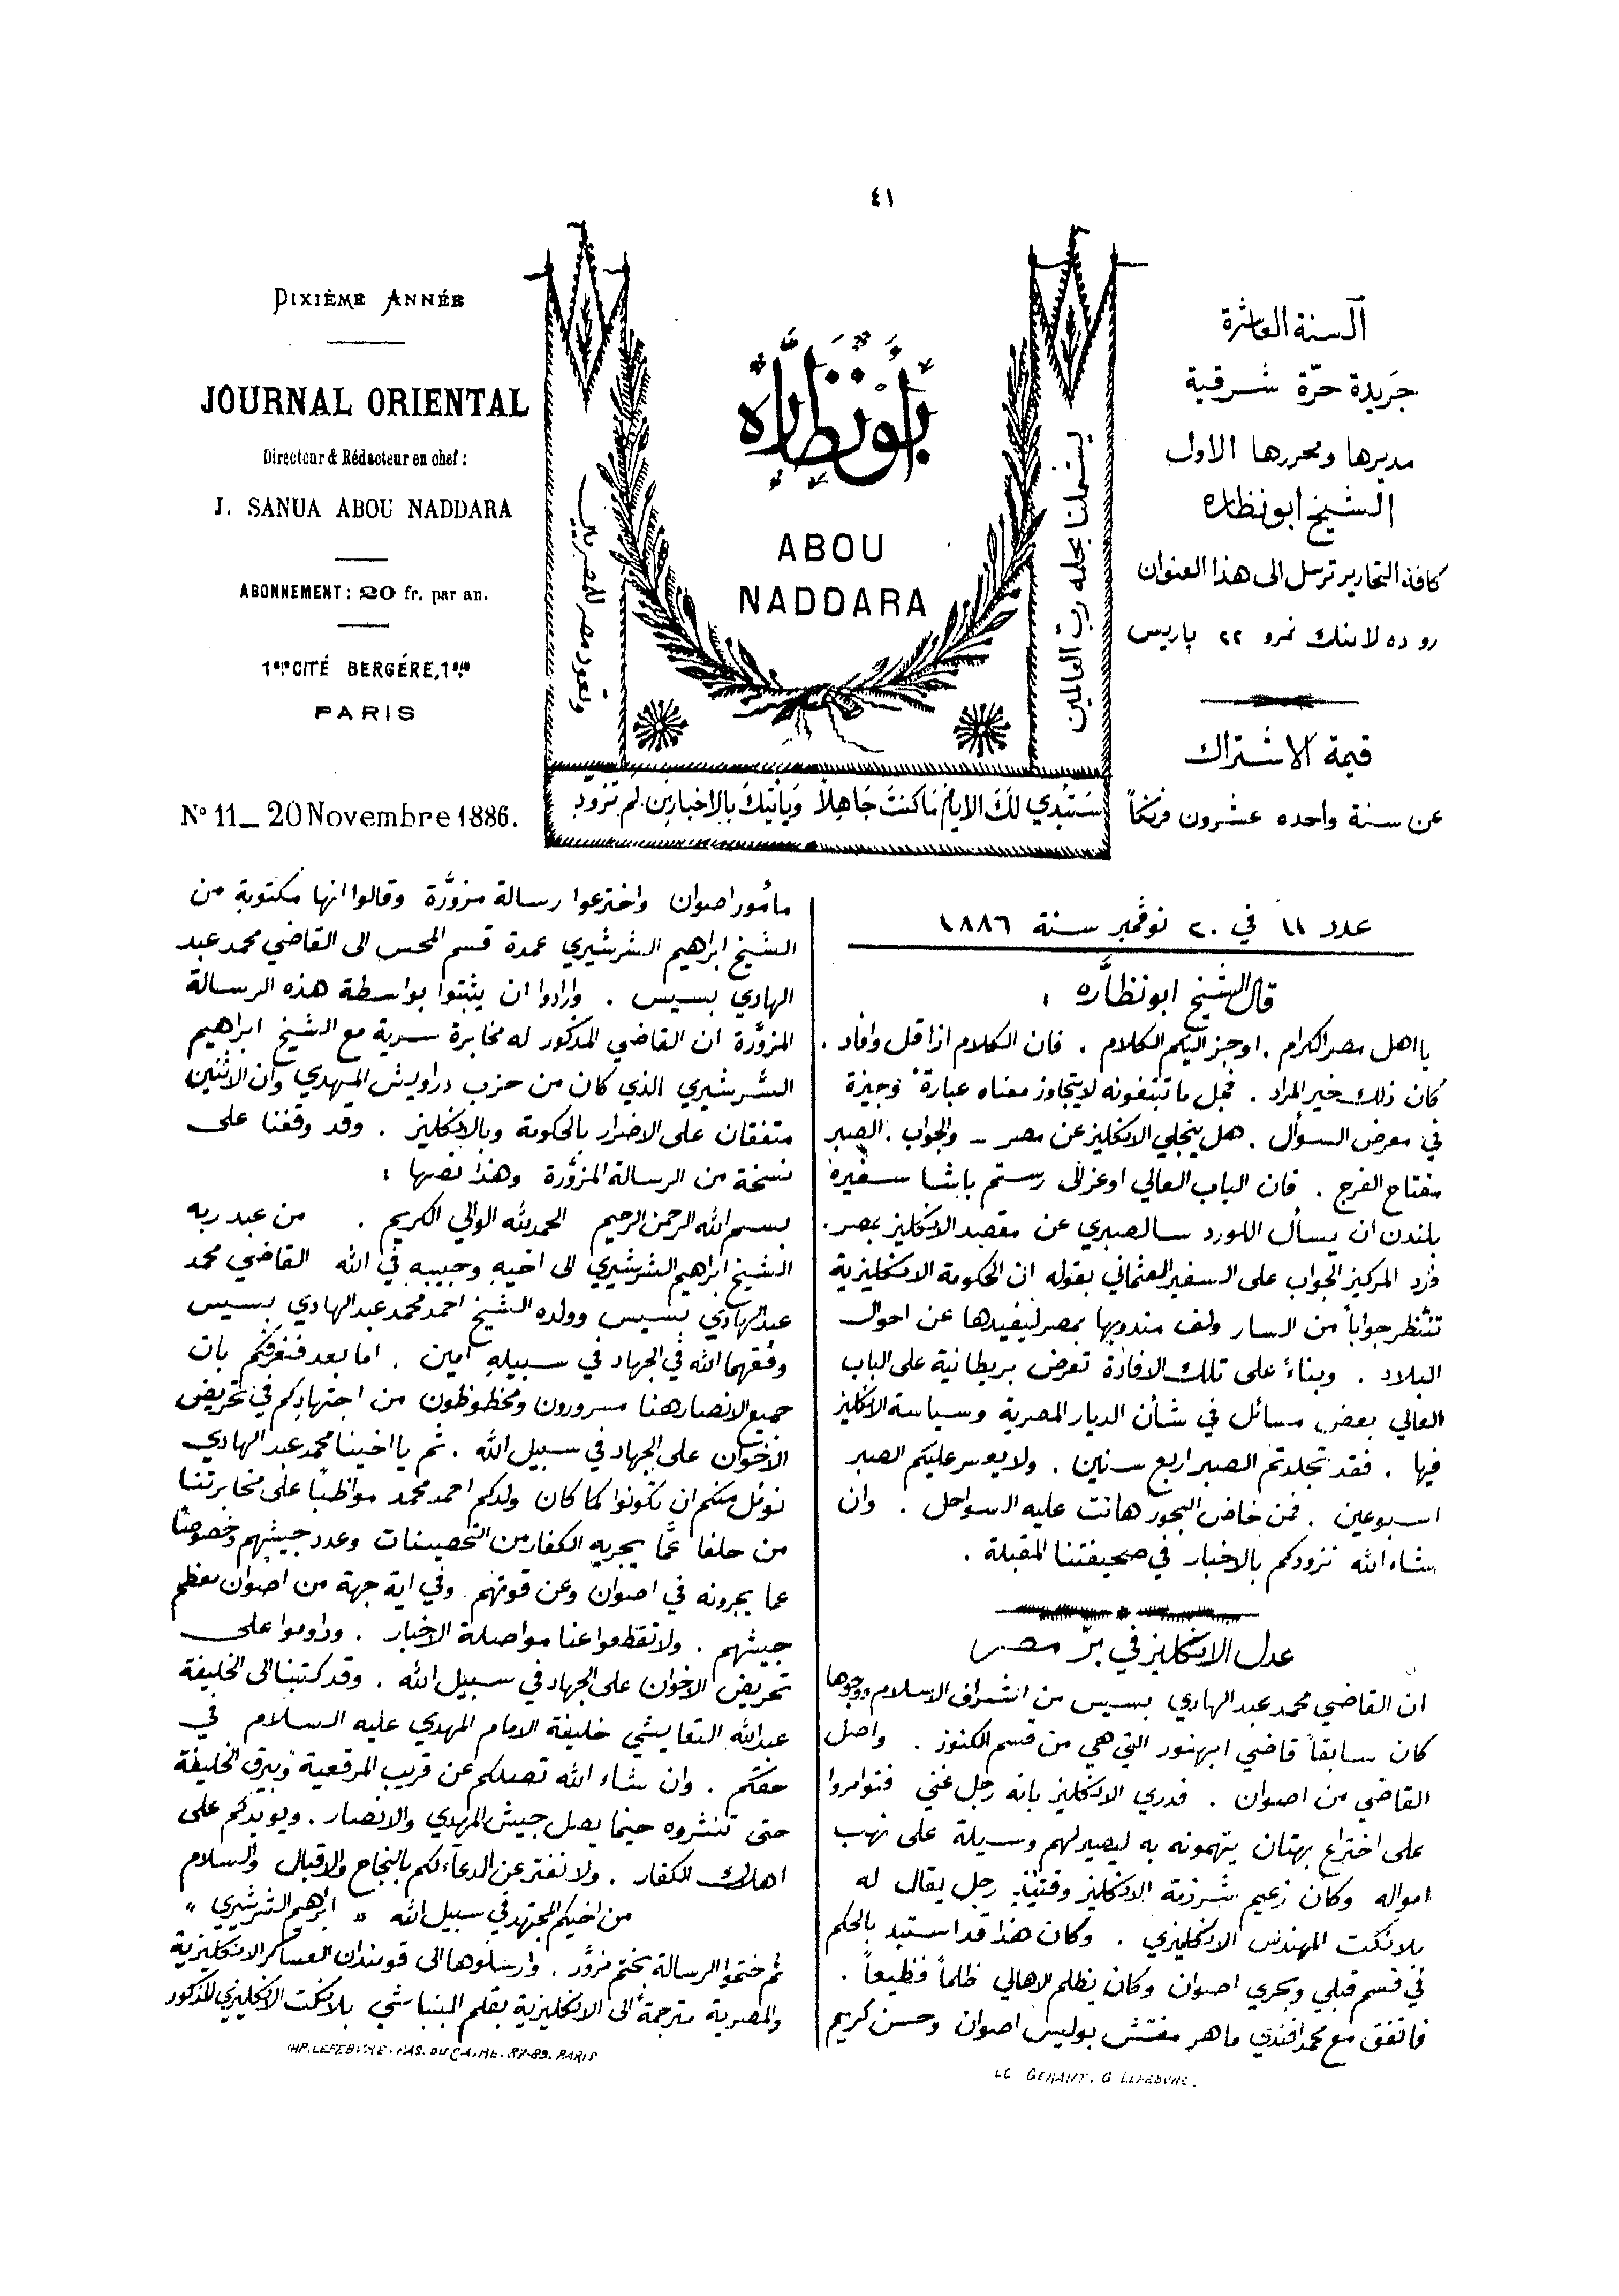 ٤١
DIXIÈME ANNÉE
JOURNAL ORIENTAL
Directeur & Rédacteur en chef :
J. SANUA ABOU NADDARA
ABONNEMENT : 20 fr. par an.
CITÉ BERGÉRE,
PARIS
Nº 11 _ 20 Novembre 1886.
أبو نظّاره
ABOU
NADDARA
يشملنا بحلمه رب العالمين
وتعود مصر للمصريين
سَتُبْدِي لَكَ الايامُ مَا كنتَ جَاهِلاً وَيَأتيكَ بالاخبارِ من لم تزود
السنة العاشرة
جَريدة حرّة شرقية
مديرها ومحررها الاول
الشيخ ابو نظاره
كافة التحارير ترسل الى هذا العنوان
رو ده لابنك نمرو ٢٢ پاريس
قيمة الاشتراك
عن سنة واحده عشرون فرنكاً
عدد ١١ في ٢٠ نوڤمبر سنة ١٨٨٦
قال الشيخ ابو نظّاره :
يا اهل مصر الكرام . اوجز اليكم الكلام . فان الكلام اذا قل وافاد .
كان ذلك خير المراد . فجل ما تبتغونه لا يتجاوز معناه عبارة وجيزة
في معرض السوأل . هل ينجلي الانكليز عن مصر – والجواب . الصبر
مفتاح الفرج . فان الباب العالي اوعز الى رستم باشا سفيره
بلندن ان يسأل اللورد سالصبري عن مقصد الانكليز بمصر .
فرد المركيز الجواب على السفير العثماني بقوله ان الحكومة الانكليزية
تنتظر جواباً من السار ولف مندوبها بمصر ليفيدها عن احوال
البلاد . وبناءً على تلك الافادة تعرض بريطانية على الباب
العالي بعض مسائل في شأن الديار المصرية وسياسة الانكليز
فيها . فقد تجلدتم الصبر اربع سنين . ولا يعسر عليكم الصبر
اسبوعين . فمن خاض البحور هانت عليه السواحل . وان
شاء الله نزودكم بالاخبار في صحيفتنا المقبلة .
عدل الانكليز في برّ مصر
ان القاضي محمد عبد الهادي بسيس من اشراف الاسلام ووجوها
كان سابقاً قاضي ابهنور التي هي من قسم الكنوز . واصل
القاضي من اصوان . فدري الانكليز بانه رجل غني فتوامروا
على اختراع بهتان يتهمونه به ليصير لهم وسيلة على نهب
امواله وكان زعيم شرذمة الانكليز وقتئذٍ رجل يقال له
بلانكت المهندس الانكليزي . وكان هذا قد استبد بالحكم
في قسم قبلي وبحري اصوان وكان يظلم الاهالي ظلماً فظيعاً .
فاتفق مع محمد افندي ماهر مفتش بوليس اصوان وحسن كريم
مأمور اصوان واخترعوا رسالة مزوَّرة وقالوا انها مكتوبة من
الشيخ ابراهيم الشرشيري عمدة قسم المحس الى القاضي محمد عبد
الهادي بسيس . وارادوا ان يثبتوا بواسطة هذه الرسالة
المزوَّرة ان القاضي المذكور له مخابرة سرية مع الشيخ ابراهيم
الشرشيري الذي كان من حزب دراويش المهدي وان الاثنين
متفقان على الاضرار بالحكومة وبالانكليز . وقد وقفنا على
نسخة من الرسالة المزوَّرة وهذا نصها :
بسم الله الرحمن الرحيم الحمد لله الوالي الكريم . من عبد ربه
الشيخ ابراهيم الشرشيري الى اخيه وحبيبه في الله القاضي محمد
عبد الهادي بسيس وولده الشيخ احمد محمد عبد الهادي بسيس
وفقهما الله في الجهاد في سبيله آمين . اما بعد فنعرفكم بان
جميع الانصار هنا مسرورون ومحظوظون من اجتهادكم في تحريض
الاخوان على الجهاد في سبيل الله . ثم يا اخينا محمد عبد الهادي
نوئمل منكم ان تكونوا كما كان ولدكم احمد محمد مواظبًا على مخابرتنا
من حلفا عمَّا يجريه الكفار من التحصينات وعدد جيشهم وخصوصًا
عما يجرونه في اصوان وعن قوتهم وفي اية جهة من اصوان معظم
جيشهم . ولا تقطعوا عنا مواصلة الاخبار . وداوموا على
تحريض الاخوان على الجهاد في سبيل الله . وقد كتبنا الى الخليفة
عبد الله التعايشي خليفة الامام المهدي عليه السلام في
حقكم . وان شاء الله تصلكم عن قريب المرقعية وبيرق الخليفة
حتى تنشروه حينما يصل جيش المهدي والانصار . ويويدكم على
اهلاك الكفار . ولا نفتر عن الدعاء لكم بالنجاح والاقبال والسلام
من اخيكم المجتهد في سبيل الله « ابراهيم الشرشيري »
ثم ختموا الرسالة بختم مزوَّر . وارسلوها الى قومندان العساكر الانكليزية
والمصرية مترجمةً الى الانكليزية بقلم البنباشي بلانكت الانكليزي المذكور
IMP. LEFEBVRE. PAS. DU CAIRE. 87-89. PARIS
LE GERANT. G LEFEBVRE.